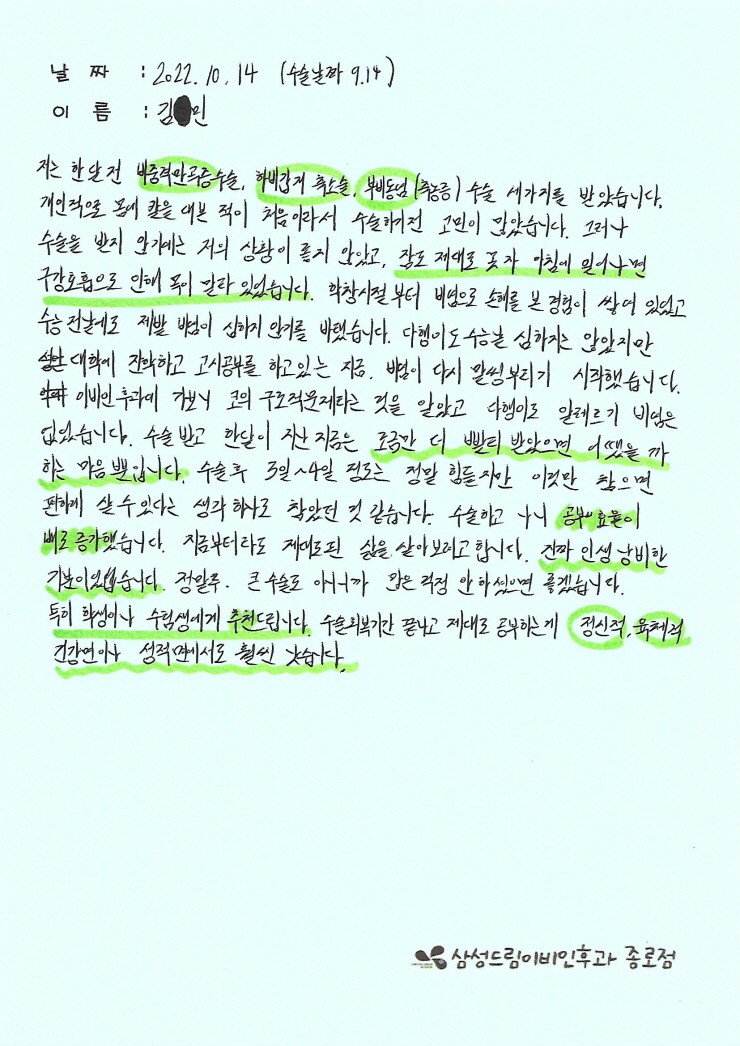 날 짜 : 2022. 10. 14 (수술날짜 9.14)
이 름 : 김 민
저는 한달 전 비중격만곡증수술, 하비갑개 축소술, 부비동염 (축농증) 수술 세가지를 받았습니다.
개인적으로 몸에 칼을 대본 적이 처음이라서 수술하기전 고민이 많았습니다. 그러나
수술을 받지 않기에는 저의 상황이 좋지 않았고, 잠도 제대로 못 자 아침에 일어나면
구강호흡으로 인해 목이 말라 있었습니다. 학창시절부터 비염으로 손해를 본 경험이 쌓여 있었고
수능 전날에도 제발 비염이 심하지 않기를 바랬습니다. 다행이도 수능날 심하지는 않았지만
대학에 진학하고 고시공부를 하고있는 지금. 비염이 다시 말썽부리기 시작했습니다.
이비인후과에 가보니 코의 구조적문제라는 것을 알았고 다행이도 알레르기 비염은
없었습니다. 수술 받고 한달이 지난 지금은 조금만 더 빨리 받았으면 어땠을 까
하는 마음 뿐입니다. 수술후 3일~4일 정도는 정말 힘들지만 이것만 참으면
편하게 살 수 있다는 생각 하나로 참았던 것 같습니다. 수술하고 나니 공부 효율이
배로 증가했습니다. 지금부터라도 제대로된 삶을 살아보려고 합니다. 진짜 인생 낭비한
기분이었습니다. 정말루. 큰 수술도 아니니까 많은 걱정 안 하셨으면 좋겠습니다.
특히 학생이나 수험생에게 추천드립니다. 수술회복기간 끝나고 제대로 공부하는게 정신적, 육체적
건강면이나 성적면에서도 훨씬 낫습니다.
삼성드림이비인후과 종로점